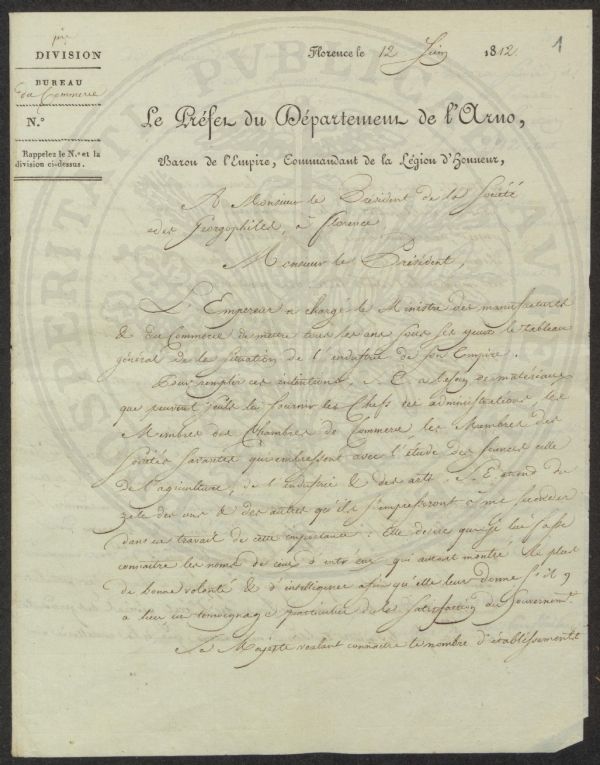 1re
DIVISION
BUREAU
du Commerce
N.°
Rappelez le N.° et la
division ci-dessus.
Florence le 12 Juin 1812
1
Le Préfet du Département de l'Arno,
Baron de l'Empire, Commandant de la Légion d'Honneur,
A Monsieur le Président de la Société
des Georgophiles, à Florence
Monsieur le Président,
L'Empereur a chargé le Ministre des manufactures
& du Commerce de mettre tous les ans sous ses yeux le tableau
général de la situation de l'industrie de son Empire.
Pour remplir ces intentions, S. E. a besoin de matériaux
que peuvent seuls lui fournir les Chefs des administrations, les
Membres des Chambres de Commerce les Membres des
Sociétés savantes qui embrassent avec l'étude des sciences celle
de l'agriculture, de l'industrie & des arts. S. E. attend du
zèle des uns & des autres qu'ils s'empresseront à me seconder
dans un travail de cette importance: Elle désire que je lui fasse
connaitre les noms de ceux d'entr'eux qui auront montré le plus
de bonne volonté & d'intelligence afin qu'elle leur donne s'il y
a lieu un témoignage particulier de la satisfaction du Gouvernemt.
Sa Majesté voulant connaitre le nombre d'établissements
PROSPERITATI PVBLICAE AVGENDAE